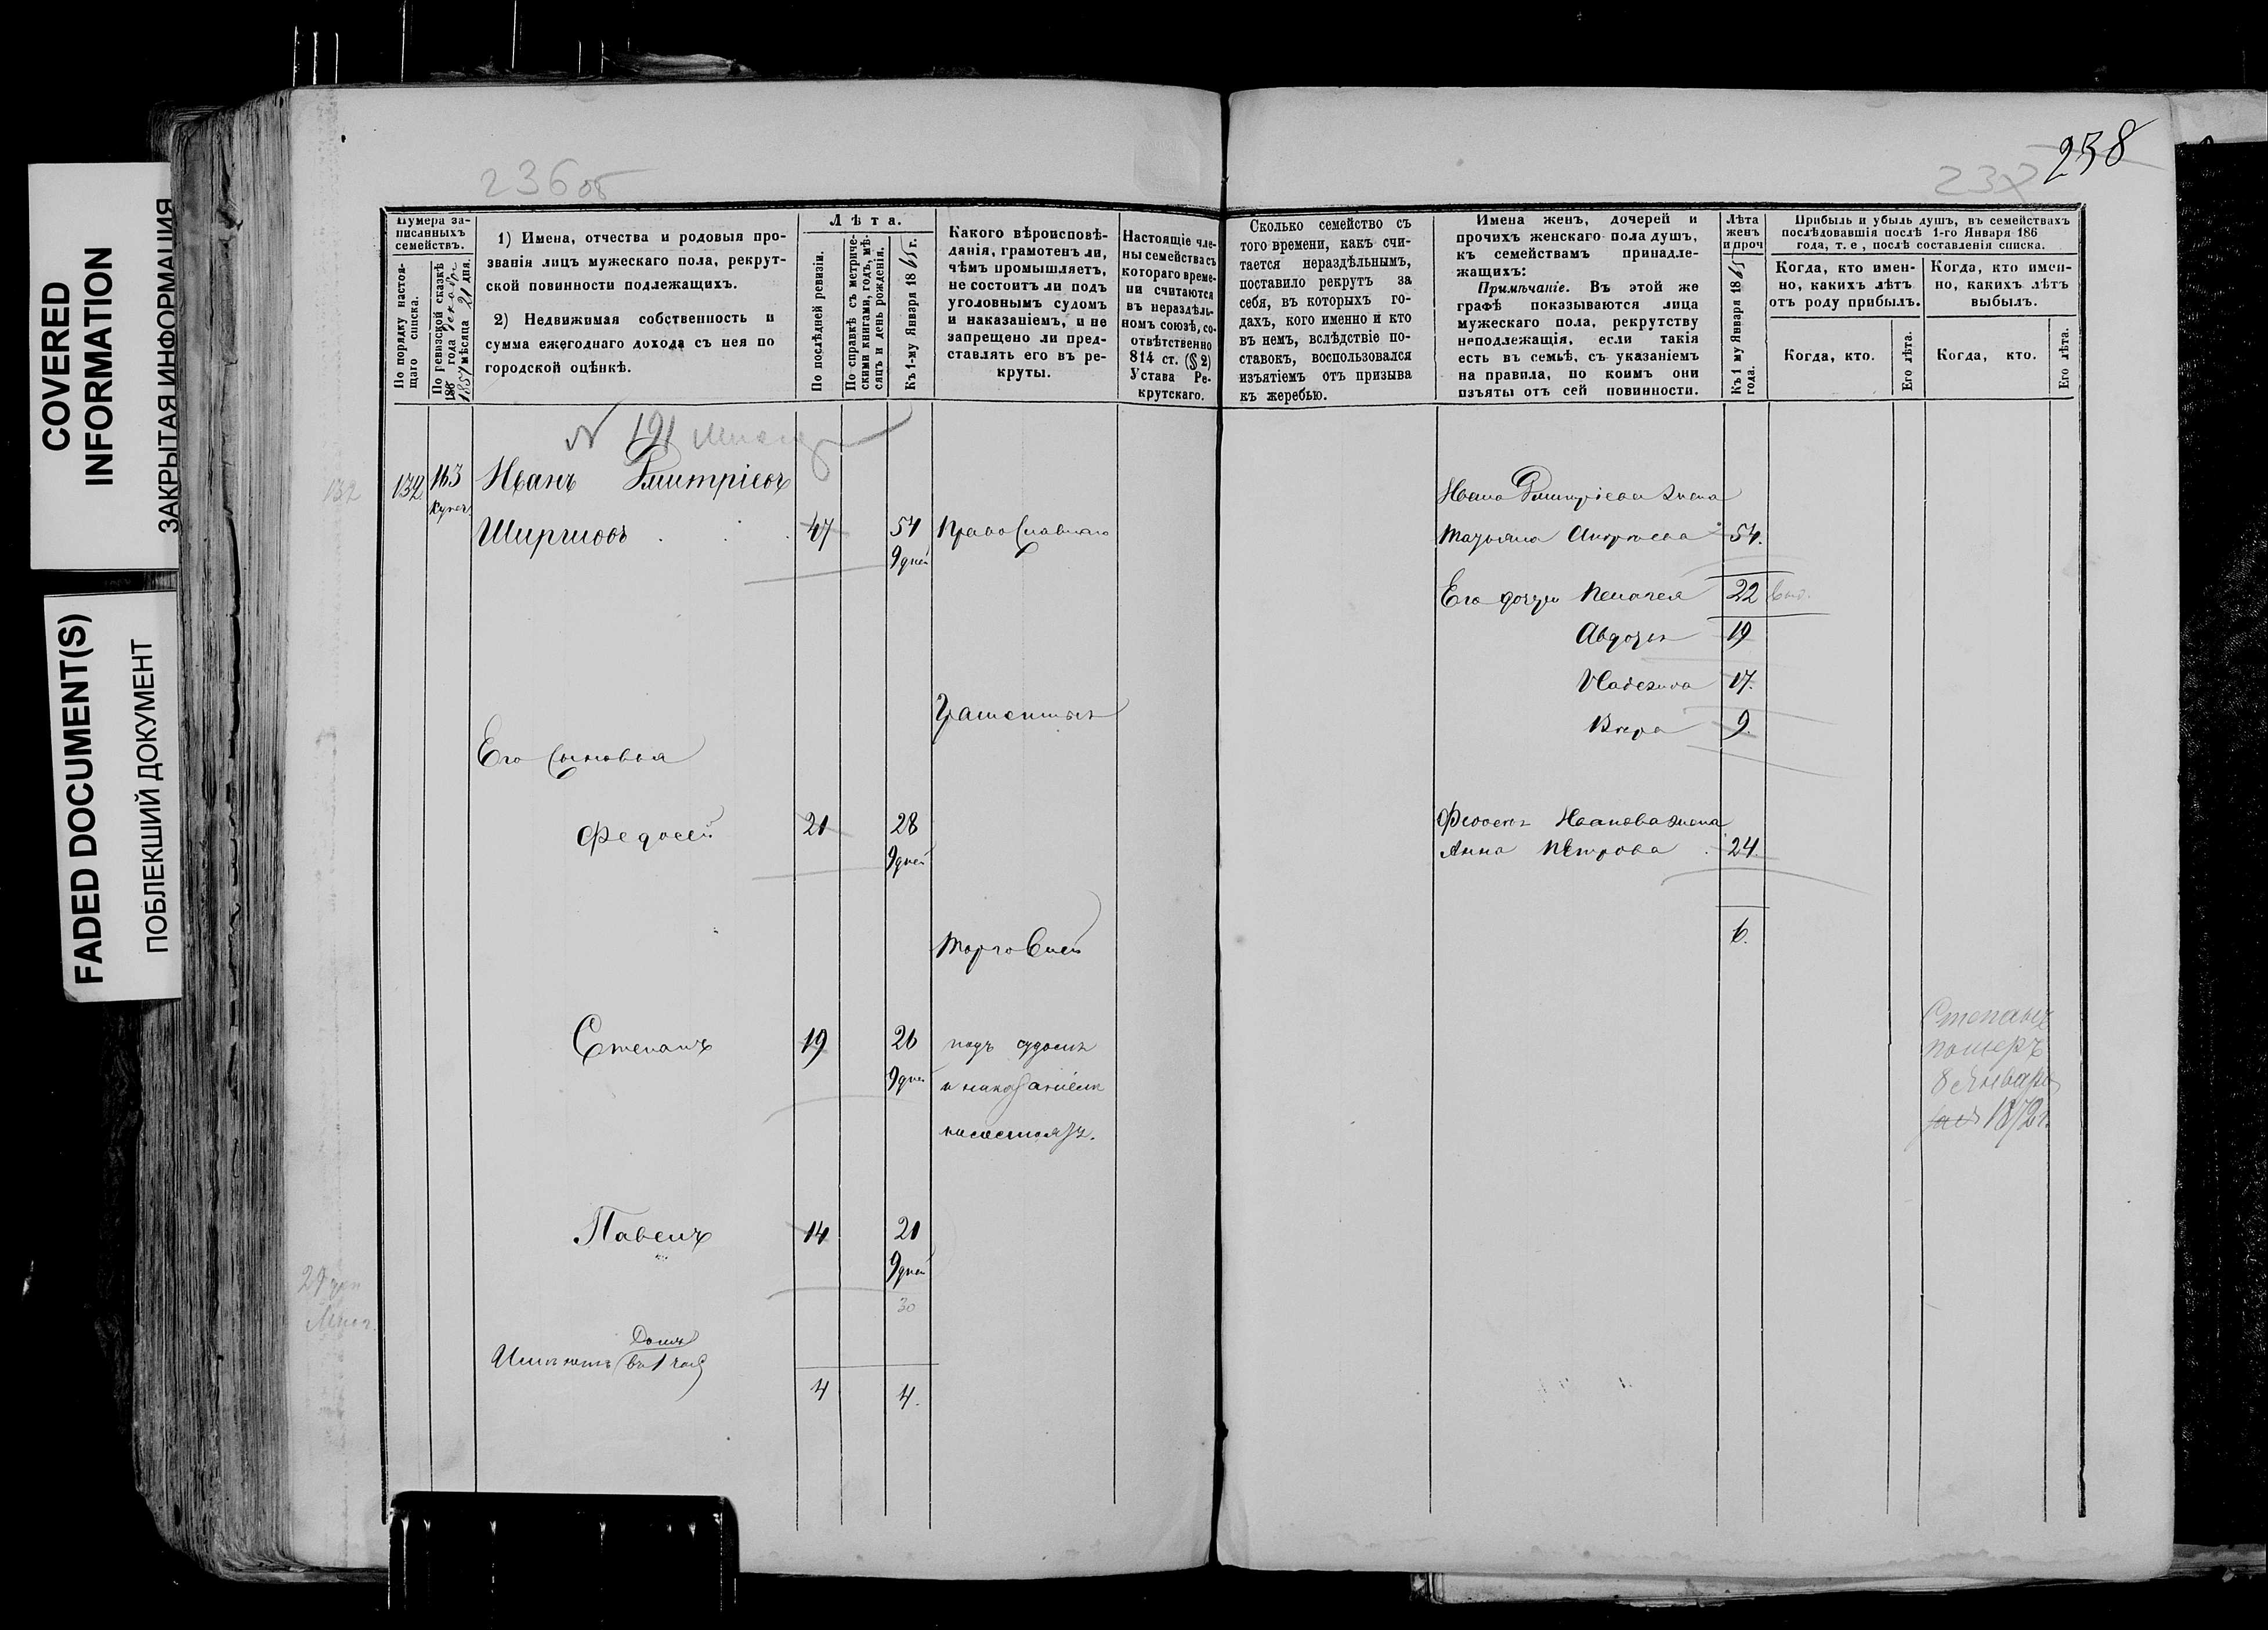 COVERED
INFORMATION
ЗАКРЫТАЯ ИНФОРМАЦИЯ
FADED DOCUMENT(S)
ПОБЛЕКШИЙ ДОКУМЕНТ
236 об
Нумера за-
писанныхъ
семействъ.
По порядку настоя-
щаго списка.
По ревизской сказкѣ
186 года декабр
1857 мѣсяца 21 дня.
1) Имена, отчества и родовыя про-
званія лицъ мужескаго пола, рекрут-
ской повинности подлежащихъ.
2) Недвижимая собственность и
сумма ежегоднаго дохода съ нея по
городской оцѣнкѣ.
Лѣта.
По послѣдней ревизіи.
По справкѣ съ метриче-
скими книгами, годъ, мѣ-
сяцъ и день рожденія.
Къ 1-му Января 1865 г.
Какого вѣроисповѣ-
данія, грамотенъ ли,
чѣмъ промышляетъ,
не состоитъ ли подъ
уголовнымъ судомъ
и наказаніемъ, и не
запрещено ли пред-
ставлять его въ ре-
круты.
Настоящіе чле-
ны семейства съ
котораго време-
ни считаются
въ нераздѣль-
номъ союзѣ, со-
отвѣтственно
814 ст. (§ 2)
Устава Ре-
крутскаго.
N 191
132
132. 163 Иванъ Дмитріевъ
купеч.
Ширшовъ 47 54 Православнаго
9 дней
Грамотный
Его сыновья
Федосей 21 28
9 дней
Торговлей
Степанъ 19 26 подъ судомъ
9 дней и наказаніемъ
несостоятъ.
Павелъ 14 21
9 дней
30
Домъ
Имѣетъ въ 1 час
4 4.
238
237
Сколько семейство съ
того времени, какъ счи-
тается нераздѣльнымъ,
поставило рекрутъ за
себя, въ которыхъ го-
дахъ, кого именно и кто
въ немъ, вслѣдствіе по-
ставокъ, воспользовался
изъятіемъ отъ призыва
къ жеребью.
Имена женъ, дочерей и
прочихъ женскаго пола душъ,
къ семействамъ принадле-
жащихъ:
Примѣчаніе. Въ этой же
графѣ показываются лица
мужескаго пола, рекрутству
неподлежащія, если такія
есть въ семьѣ, съ указаніемъ
на правила, по коимъ они
изъяты отъ сей повинности.
Лѣта
женъ
и проч
Къ 1 му Января 1865
года.
Прибыль и убыль душъ, въ семействахъ
послѣдовавшія послѣ 1-го Января 186
года, т. е , послѣ составленія списка.
Когда, кто имен-
но, какихъ лѣтъ
отъ роду прибылъ.
Когда, кто имен-
но, какихъ лѣтъ
выбылъ.
Когда, кто.
Его лѣта.
Когда, кто.
Его лѣта.
Ивана Дмитріева жена
Татьяна 54.
Его дочери Пелагея 22
Авдотья 19
Надежда 17.
Вѣра 9.
Федосея Иванова жена
Анна Петрова 24.
6.
Степанъ
померъ
8 Января
1872 г.